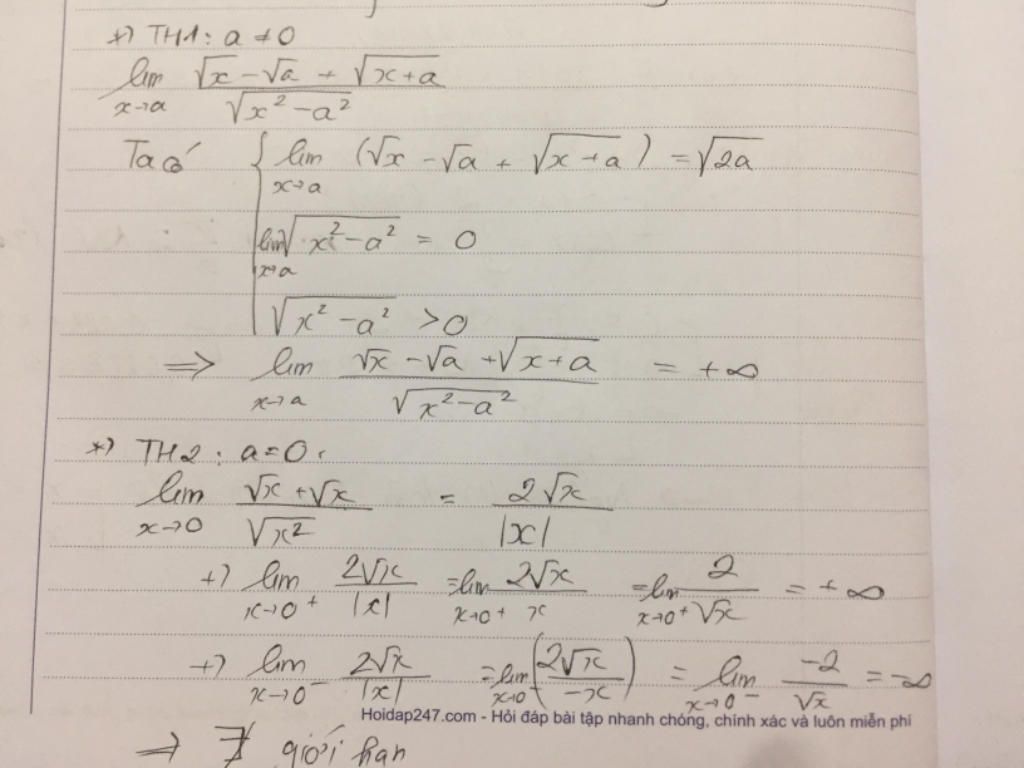 *) TH1: a ≠ 0
lim x→a (√x − √a + √(x+a)) / √(x² − a²)
Ta có { lim x→a (√x − √a + √(x+a)) = √(2a)
lim x→a √(x² − a²) = 0
√(x² − a²) > 0
⇒ lim x→a (√x − √a + √(x+a)) / √(x² − a²) = +∞
*) TH2: a = 0.
lim x→0 (√x + √x) / √(x²) = 2√x / |x|
+) lim x→0⁺ 2√x / |x| = lim x→0⁺ 2√x / x = lim x→0⁺ 2 / √x = +∞
+) lim x→0⁻ 2√x / |x| = lim x→0⁻ (2√x / −x) = lim x→0⁻ −2 / √x = −∞
Hoidap247.com - Hỏi đáp bài tập nhanh chóng, chính xác và luôn miễn phí
⇒ ∄ giới hạn